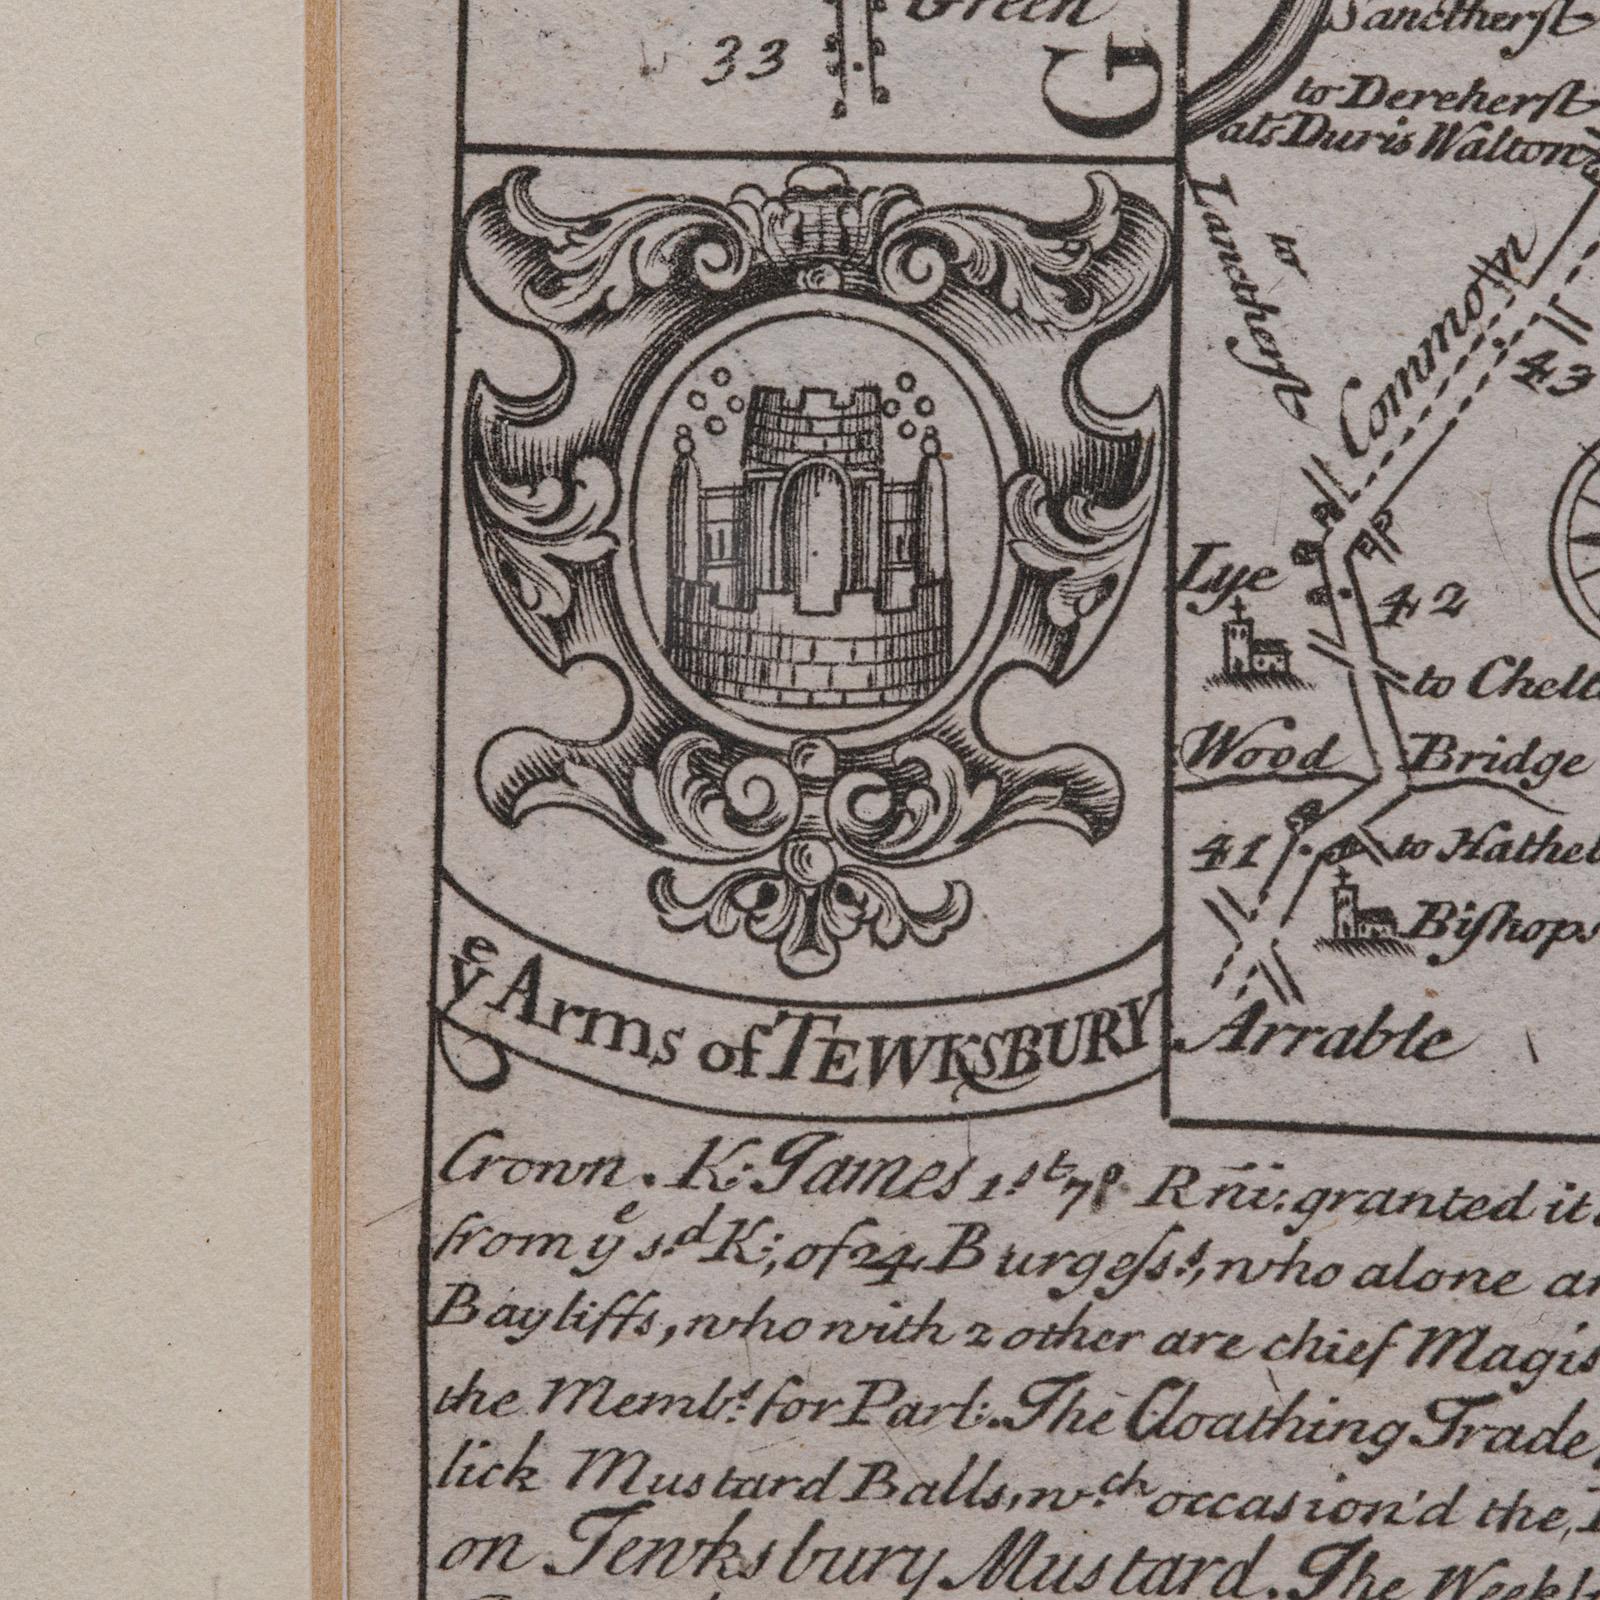 Green
33
G
Sanctherst
to Dereherst
als Duris Walton
to
Lanctherst
Common
43
Lye
42
to Chelt
Wood Bridge
41
to Hathel
Bishops
Arrable
yᵉ Arms of TEWKSBURY
Crown. K: James 1.ˢᵗ 7º Rñi: granted it
from yᵉ s.ᵈ K; of 24 Burgess.ˢ, who alone
Bayliffs, who with 2 other are chief Magis
the Memb.ˢ for Parl:. The Cloathing Trade,
lick Mustard Balls, w.ᶜʰ occasion'd the
on Tewksbury Mustard. The Weekl